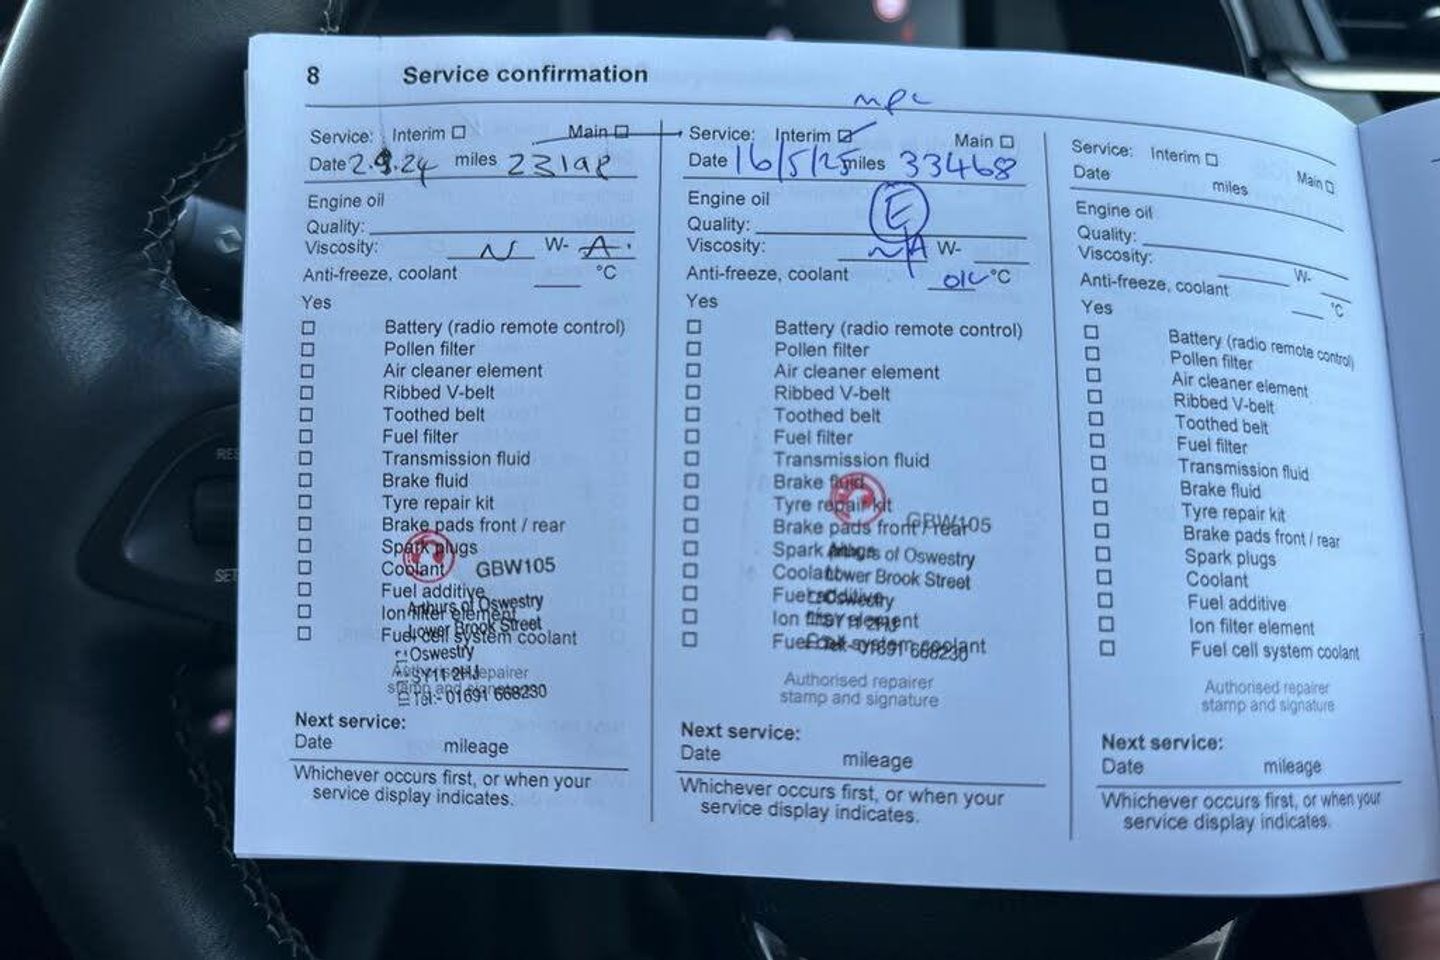 8 Service confirmation
Service: Interim ☐ Main ☐
Date 2.9.24 miles 23198
Engine oil
Quality:
Viscosity: N W- A.
Anti-freeze, coolant °C
Yes
☐ Battery (radio remote control)
☐ Pollen filter
☐ Air cleaner element
☐ Ribbed V-belt
☐ Toothed belt
☐ Fuel filter
☐ Transmission fluid
☐ Brake fluid
☐ Tyre repair kit
☐ Brake pads front / rear
☐ Spark plugs
☐ Coolant
☐ Fuel additive
☐ Ion filter element
☐ Fuel cell system coolant
GBW105
Arthurs of Oswestry
Lower Brook Street
Oswestry
SY11 2HJ
Tel:- 01691 668230
Authorised repairer
stamp and signature
Next service:
Date mileage
Whichever occurs first, or when your
service display indicates.
Service: Interim ☑ Main ☐
Date 16/5/25 miles 33468
Engine oil
E
Quality:
Viscosity: N/A W-
Anti-freeze, coolant °C
Yes
☐ Battery (radio remote control)
☐ Pollen filter
☐ Air cleaner element
☐ Ribbed V-belt
☐ Toothed belt
☐ Fuel filter
☐ Transmission fluid
☐ Brake fluid
☐ Tyre repair kit
☐ Brake pads front / rear
☐ Spark plugs
☐ Coolant
☐ Fuel additive
☐ Ion filter element
☐ Fuel cell system coolant
GBW105
Arthurs of Oswestry
Lower Brook Street
Oswestry
SY11 2HJ
Tel:- 01691 668230
Authorised repairer
stamp and signature
Next service:
Date mileage
Whichever occurs first, or when your
service display indicates.
Service: Interim ☐ Main ☐
Date miles
Engine oil
Quality:
Viscosity: W-
Anti-freeze, coolant °C
Yes
☐ Battery (radio remote control)
☐ Pollen filter
☐ Air cleaner element
☐ Ribbed V-belt
☐ Toothed belt
☐ Fuel filter
☐ Transmission fluid
☐ Brake fluid
☐ Tyre repair kit
☐ Brake pads front / rear
☐ Spark plugs
☐ Coolant
☐ Fuel additive
☐ Ion filter element
☐ Fuel cell system coolant
Authorised repairer
stamp and signature
Next service:
Date mileage
Whichever occurs first, or when your
service display indicates.
RES
SET